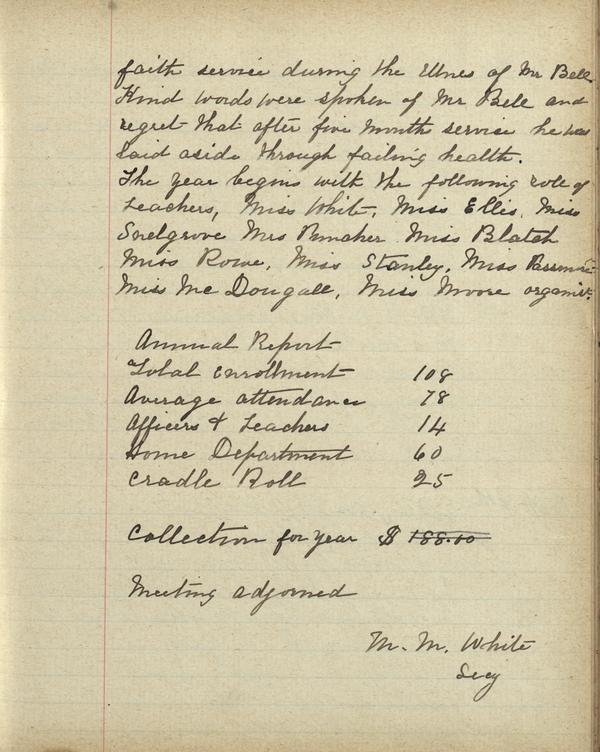 faith service during the Illnes of Mr Bell
Kind words were spoken of Mr Bell and
regret that after five month service he was
laid aside through failing health.
The year begins with the following role of
Teachers, Miss White, Miss Ellis, Miss
Snelgrove Mrs Miss Blatch
Miss Rowe, Miss Stanley, Miss
Miss Mc Dougall, Miss Moore organist.
Annual Report
Total enrollment 108
Average attendance 78
Officers & Teachers 14
Home Department 60
Cradle Roll 25
Collection for year $ 188.00
Meeting adjorned
M. M. White
Secy